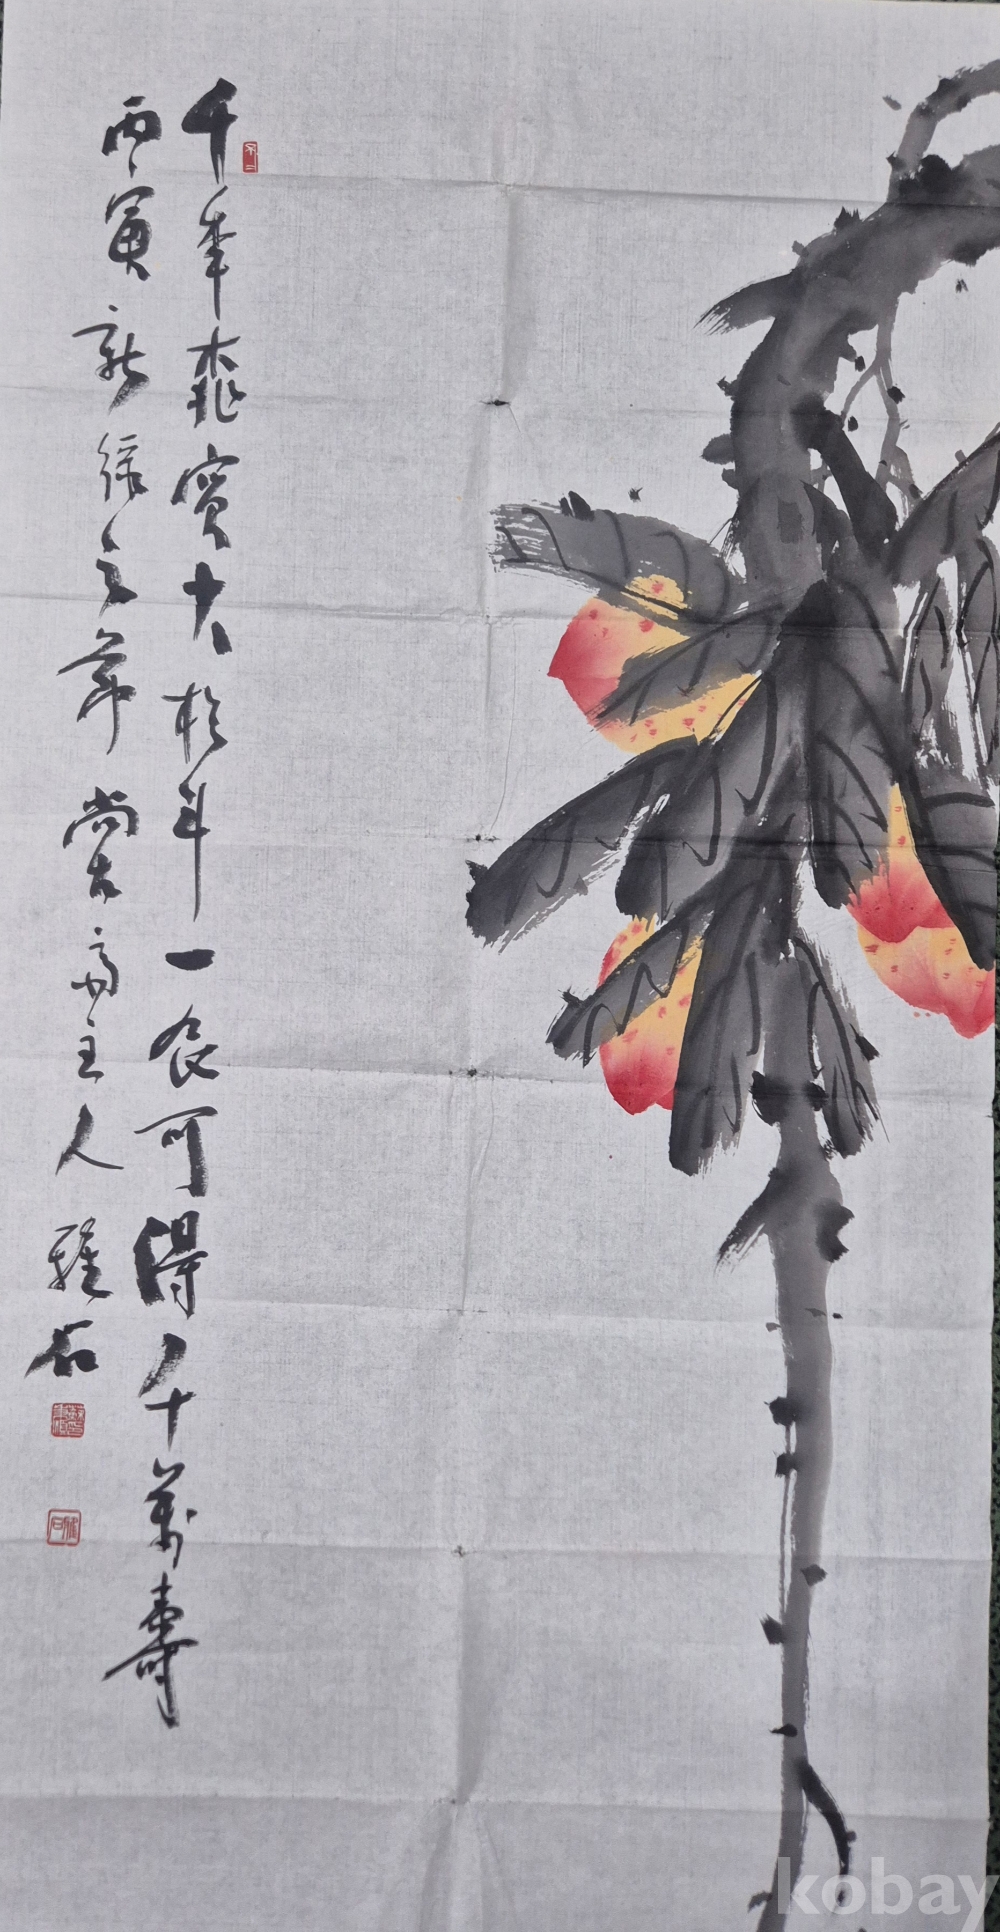 千年桃實大於斗 一食可得千萬壽
丙寅新綠之節 尚古齋主人 雅石
不二
kobay